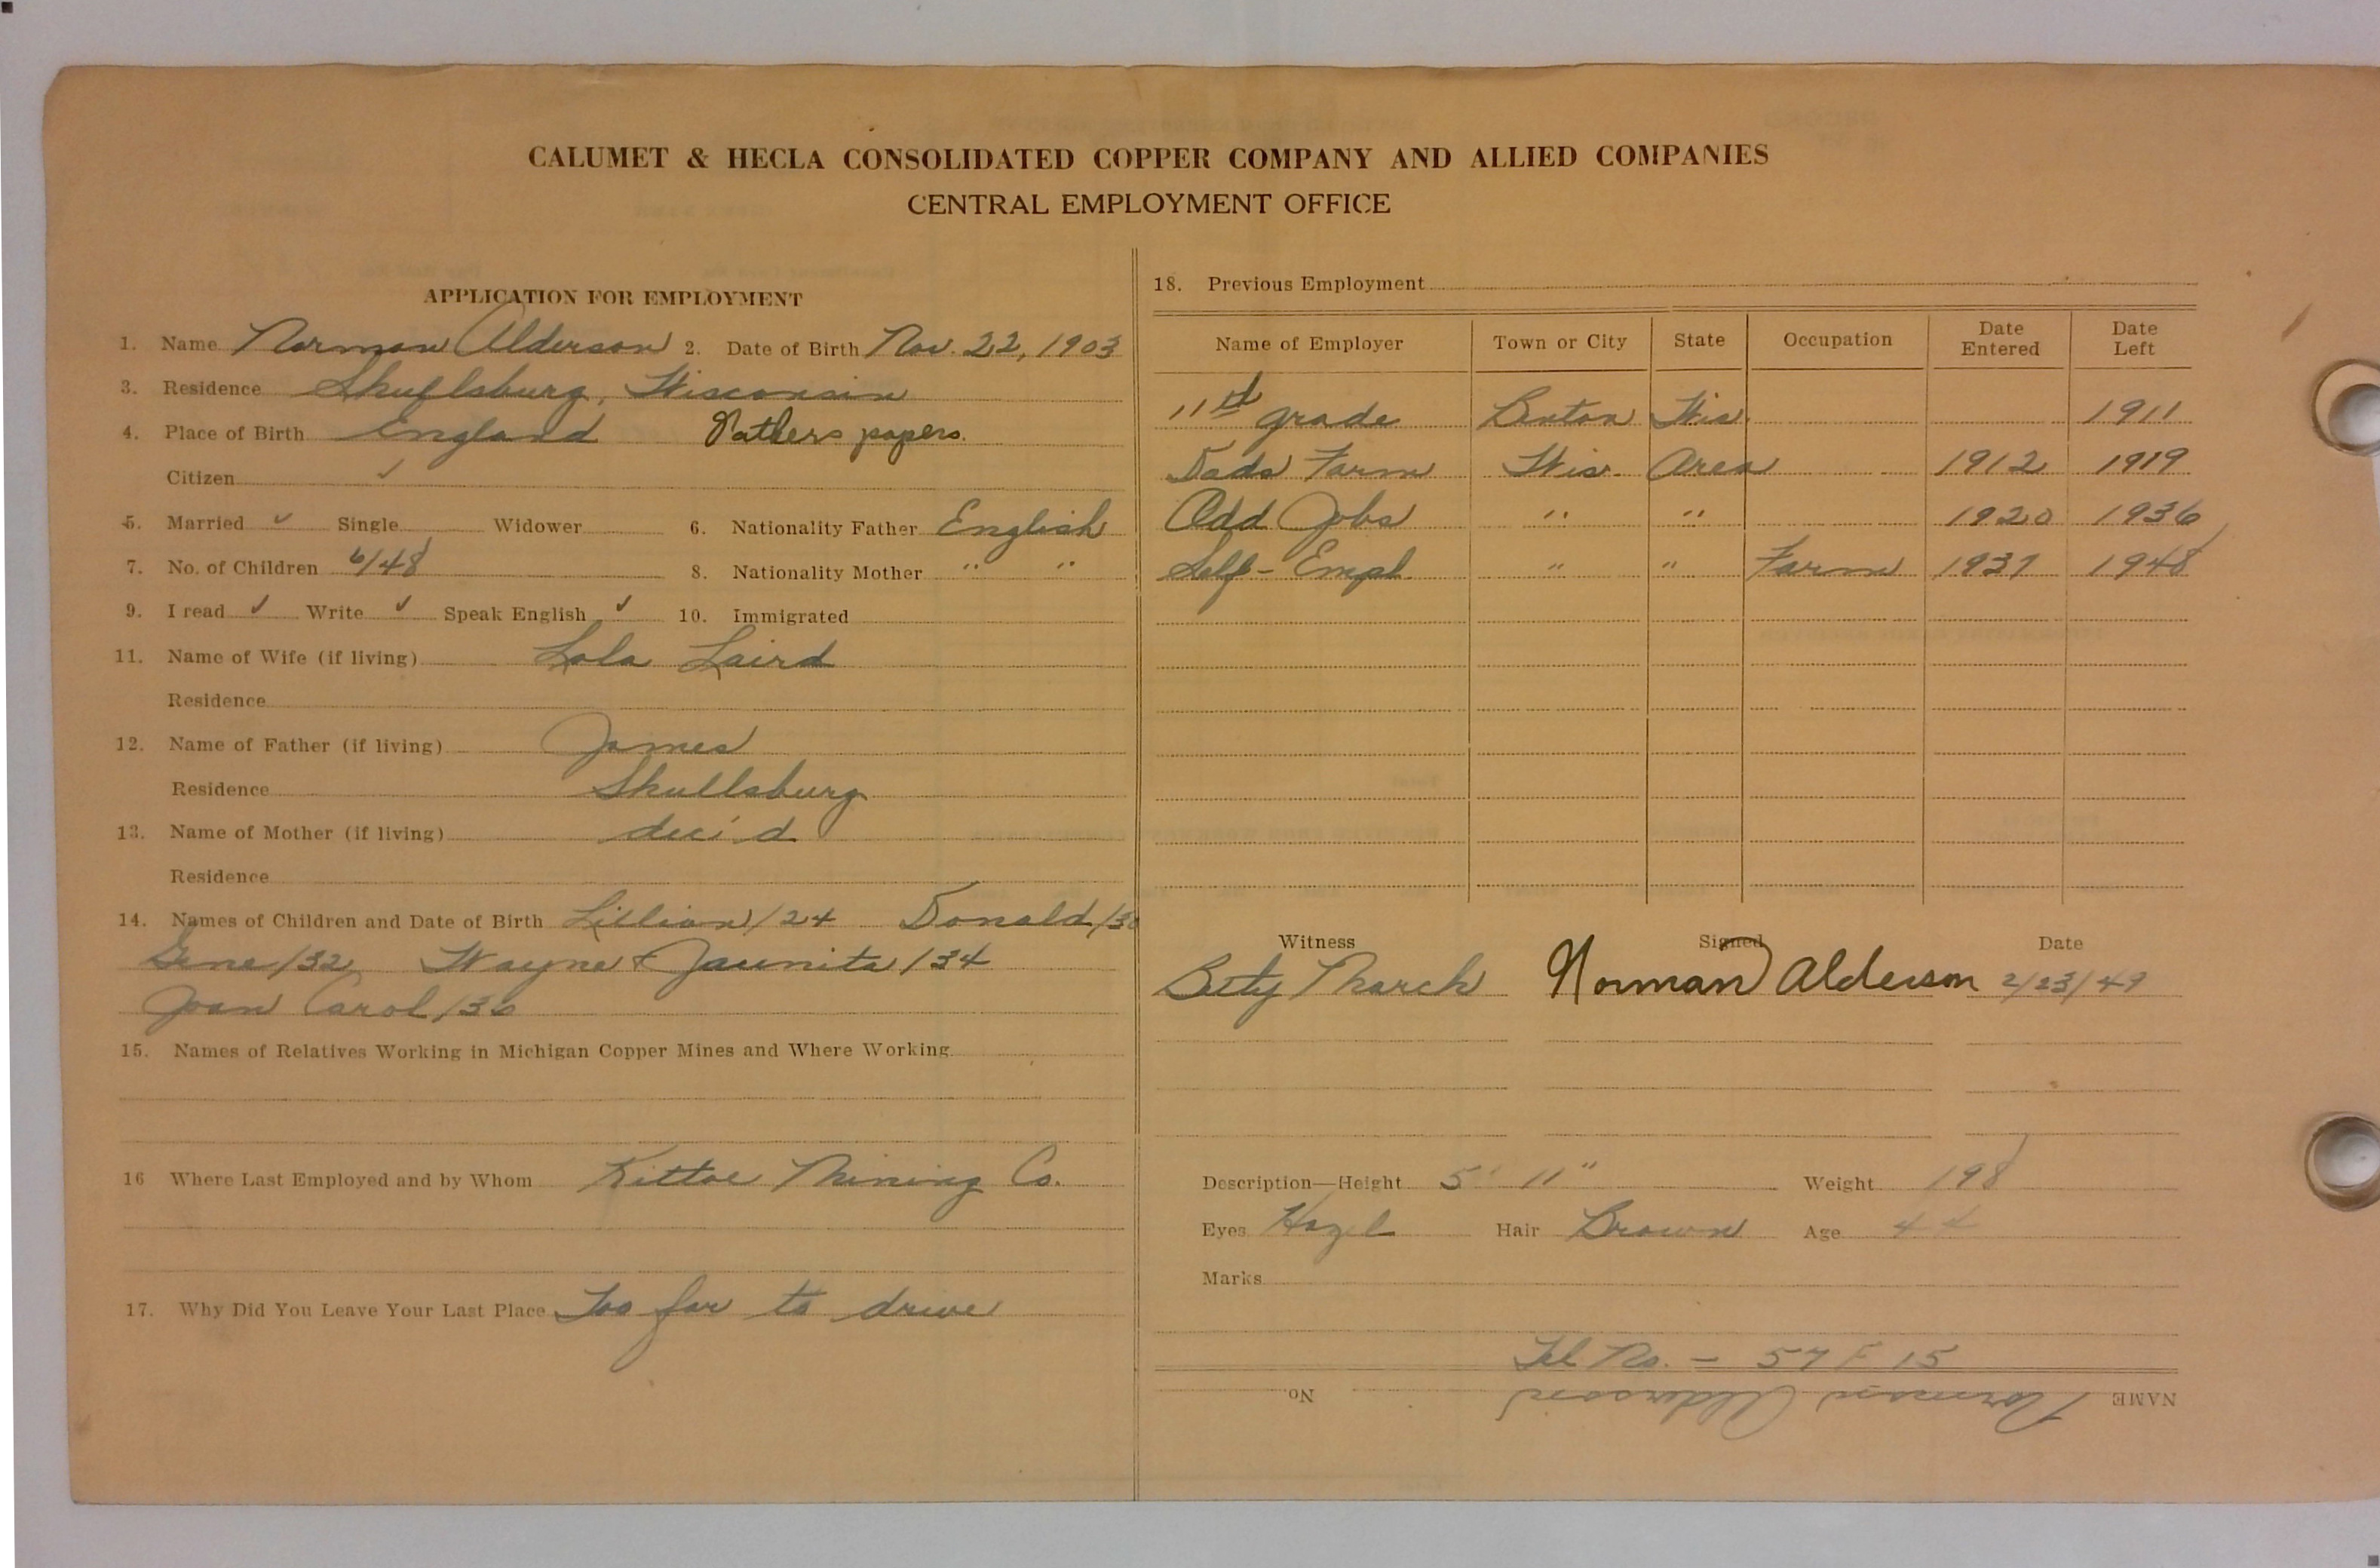 CALUMET & HECLA CONSOLIDATED COPPER COMPANY AND ALLIED COMPANIES
CENTRAL EMPLOYMENT OFFICE
APPLICATION FOR EMPLOYMENT
1. Name Norman Alderson 2. Date of Birth Nov. 22, 1903
3. Residence Shullsburg, Wisconsin
4. Place of Birth England Fathers papers.
Citizen ✓
5. Married ✓ Single Widower 6. Nationality Father English
7. No. of Children 6/48 8. Nationality Mother " "
9. I read ✓ Write ✓ Speak English ✓ 10. Immigrated
11. Name of Wife (if living) Lola Laird
Residence
12. Name of Father (if living) James
Residence Shullsburg
13. Name of Mother (if living) dec'd
Residence
14. Names of Children and Date of Birth Lillian/24 Donald/30
Gene/32 Wayne & Jaunita/34
Joan Carol/36
15. Names of Relatives Working in Michigan Copper Mines and Where Working
16 Where Last Employed and by Whom Kittoe Mining Co.
17. Why Did You Leave Your Last Place Too far to drive
18. Previous Employment
Name of Employer Town or City State Occupation Date Entered Date Left
11th grade Benton Wis. 1911
Dads Farm Wis. Area 1912 1919
Odd Jobs " " 1920 1936
Self-Empl. " " Farm 1937 1948
Witness Signed Date
Betty March Norman Alderson 2/23/49
Description—Height 5' 11" Weight 198
Eyes Hazel Hair Brown Age 44
Marks
Tel. No. - 57 F 15
NAME Norman Alderson No.